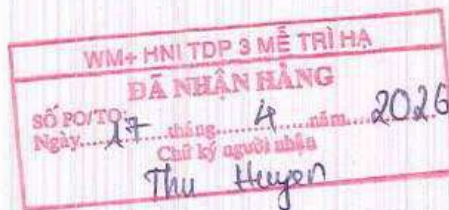 WM+ HNI TDP 3 MỄ TRÌ HẠ
ĐÃ NHẬN HÀNG
SỐ PO/TO:
Ngày....17....tháng....4....năm....2026
Chữ ký người nhận
Thu Huyen